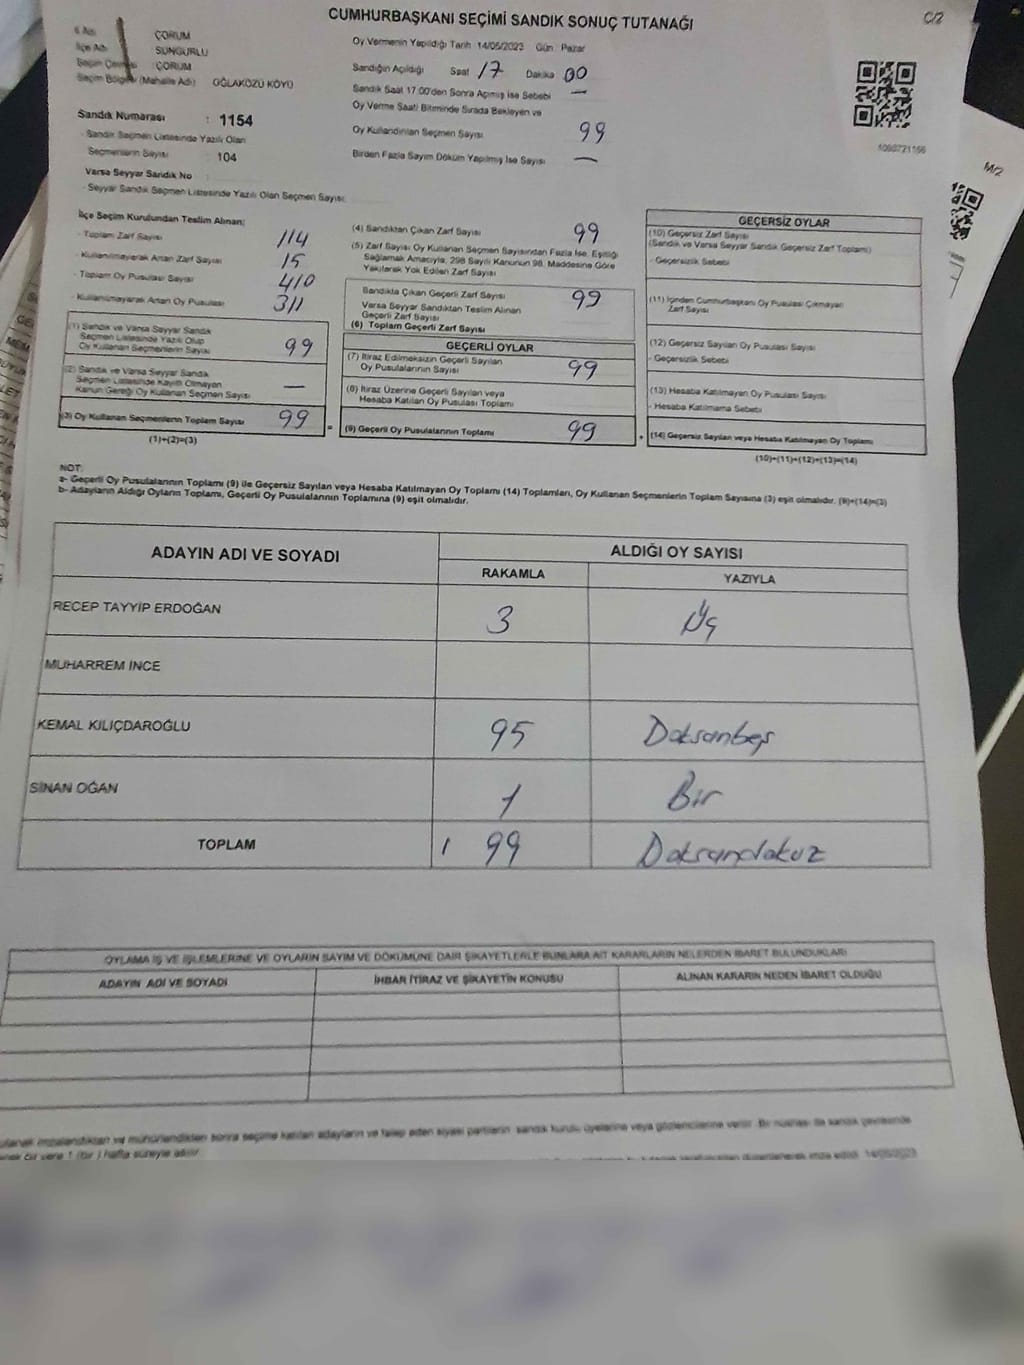 CUMHURBAŞKANI SEÇİMİ SANDIK SONUÇ TUTANAĞI
C/2
İl Adı ÇORUM
İlçe Adı SUNGURLU
Seçim Çevresi : ÇORUM
Seçim Bölgesi (Mahalle Adı) OĞLAKÖZÜ KÖYÜ
Sandık Numarası : 1154
- Sandık Seçmen Listesinde Yazılı Olan
Seçmenlerin Sayısı : 104
Varsa Seyyar Sandık No
- Seyyar Sandık Seçmen Listesinde Yazılı Olan Seçmen Sayısı:
Oy Vermenin Yapıldığı Tarih 14/05/2023 Gün Pazar
Sandığın Açıldığı Saat 17 Dakika 00
Sandık Saat 17:00'den Sonra Açılmış İse Sebebi —
Oy Verme Saati Bitiminde Sırada Bekleyen ve
Oy Kullandırılan Seçmen Sayısı 99
Birden Fazla Sayım Döküm Yapılmış İse Sayısı —
M/2
İlçe Seçim Kurulundan Teslim Alınan:
- Toplam Zarf Sayısı 114
- Kullanılmayarak Artan Zarf Sayısı 15
- Toplam Oy Pusulası Sayısı 410
- Kullanılmayarak Artan Oy Pusulası 311
(1) Sandık ve Varsa Seyyar Sandık
Seçmen Listesinde Yazılı Olup
Oy Kullanan Seçmenlerin Sayısı 99
(2) Sandık ve Varsa Seyyar Sandık
Seçmen Listesinde Kayıtlı Olmayan
Kanun Gereği Oy Kullanan Seçmen Sayısı —
(3) Oy Kullanan Seçmenlerin Toplam Sayısı 99
(1)+(2)=(3)
(4) Sandıktan Çıkan Zarf Sayısı 99
(5) Zarf Sayısı Oy Kullanan Seçmen Sayısından Fazla İse, Eşitliği
Sağlamak Amacıyla, 298 Sayılı Kanunun 98. Maddesine Göre
Yakılarak Yok Edilen Zarf Sayısı
Sandıkta Çıkan Geçerli Zarf Sayısı 99
Varsa Seyyar Sandıktan Teslim Alınan
Geçerli Zarf Sayısı
(6) Toplam Geçerli Zarf Sayısı
GEÇERLİ OYLAR
(7) İtiraz Edilmeksizin Geçerli Sayılan
Oy Pusulalarının Sayısı 99
(8) İtiraz Üzerine Geçerli Sayılan veya
Hesaba Katılan Oy Pusulası Toplamı
= (9) Geçerli Oy Pusulalarının Toplamı 99
GEÇERSİZ OYLAR
(10) Geçersiz Zarf Sayısı
(Sandık ve Varsa Seyyar Sandık Geçersiz Zarf Toplamı)
- Geçersizlik Sebebi
(11) İçinden Cumhurbaşkanı Oy Pusulası Çıkmayan
Zarf Sayısı
(12) Geçersiz Sayılan Oy Pusulası Sayısı
- Geçersizlik Sebebi
(13) Hesaba Katılmayan Oy Pusulası Sayısı
- Hesaba Katılmama Sebebi
+ (14) Geçersiz Sayılan veya Hesaba Katılmayan Oy Toplamı
(10)+(11)+(12)+(13)=(14)
NOT:
a- Geçerli Oy Pusulalarının Toplamı (9) ile Geçersiz Sayılan veya Hesaba Katılmayan Oy Toplamı (14) Toplamları, Oy Kullanan Seçmenlerin Toplam Sayısına (3) eşit olmalıdır. (9)+(14)=(3)
b- Adayların Aldığı Oyların Toplamı, Geçerli Oy Pusulalarının Toplamına (9) eşit olmalıdır.
ADAYIN ADI VE SOYADI ALDIĞI OY SAYISI
RAKAMLA YAZIYLA
RECEP TAYYİP ERDOĞAN 3 Üç
MUHARREM İNCE
KEMAL KILIÇDAROĞLU 95 Doksanbeş
SİNAN OĞAN 1 Bir
TOPLAM 99 Doksandokuz
OYLAMA İŞ VE İŞLEMLERİNE VE OYLARIN SAYIM VE DÖKÜMÜNE DAİR ŞİKAYETLERLE BUNLARA AİT KARARLARIN NELERDEN İBARET BULUNDUKLARI
ADAYIN ADI VE SOYADI İHBAR İTİRAZ VE ŞİKAYETİN KONUSU ALINAN KARARIN NEDEN İBARET OLDUĞU
imzalandıktan ve mühürlendikten sonra seçime katılan adayların ve talep eden siyasi partilerin sandık kurulu üyelerine veya gözlemcilerine verilir. Bir nüshası da sandık çevresinde
bir yere 1 (bir) hafta süreyle asılır.
düzenlenerek imza edildi. 14/05/2023